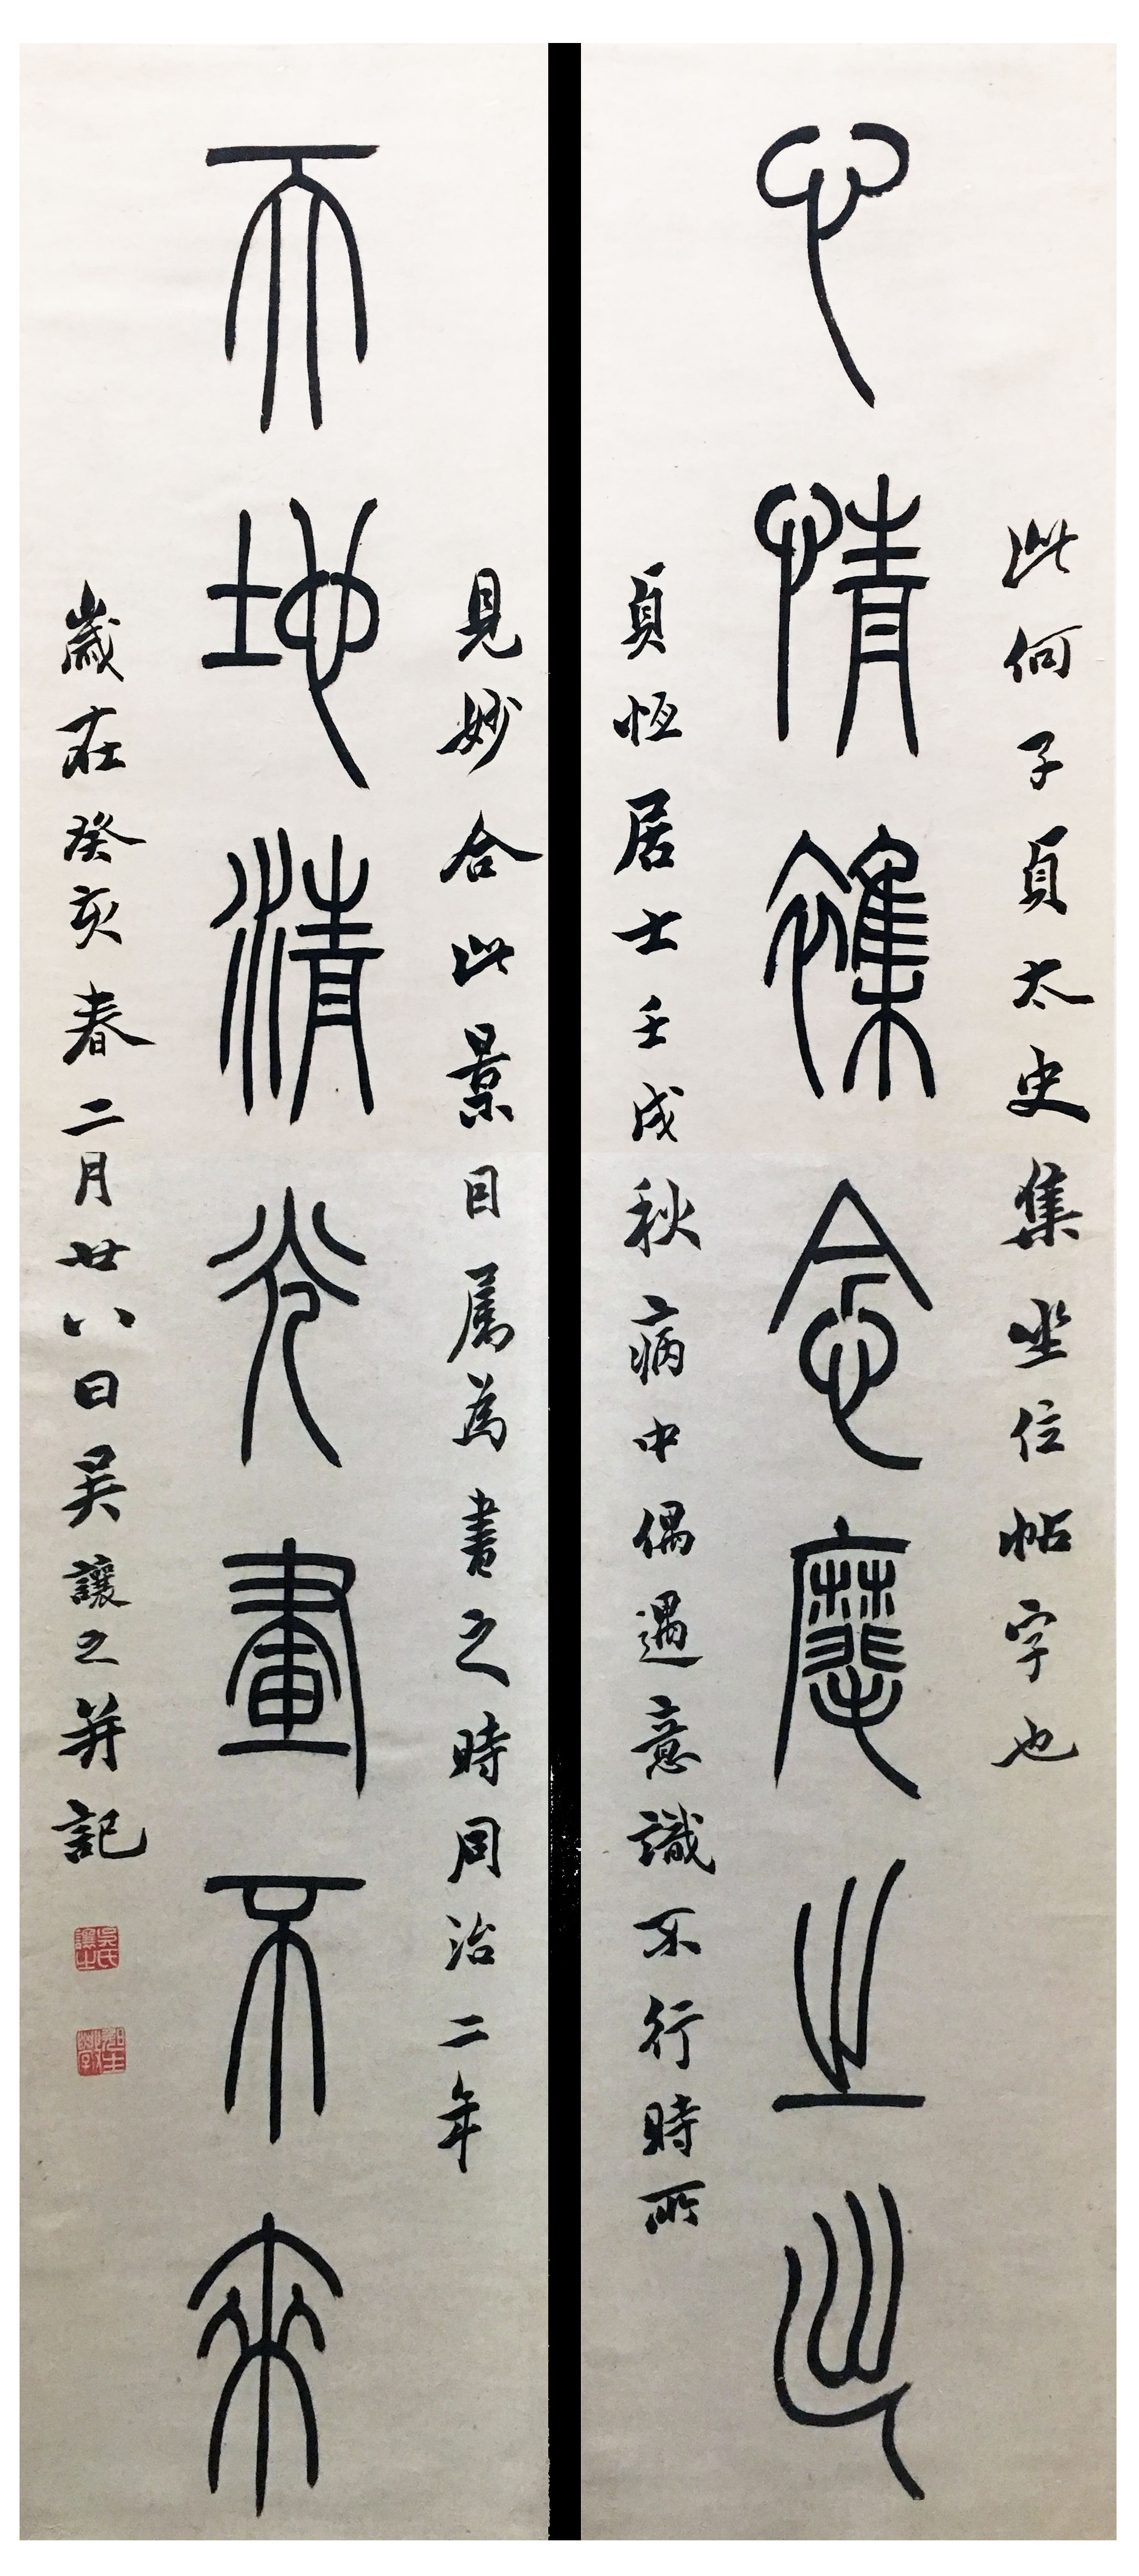 此何子貞太史集坐位帖字也
心情襍念麾之出
貞恆居士壬戌秋病中偶遇意識不行時所
見妙合此景因属為書之時同治二年
天地清光畫不來
歲在癸亥春二月廿八日吳讓之并記
吳氏讓之